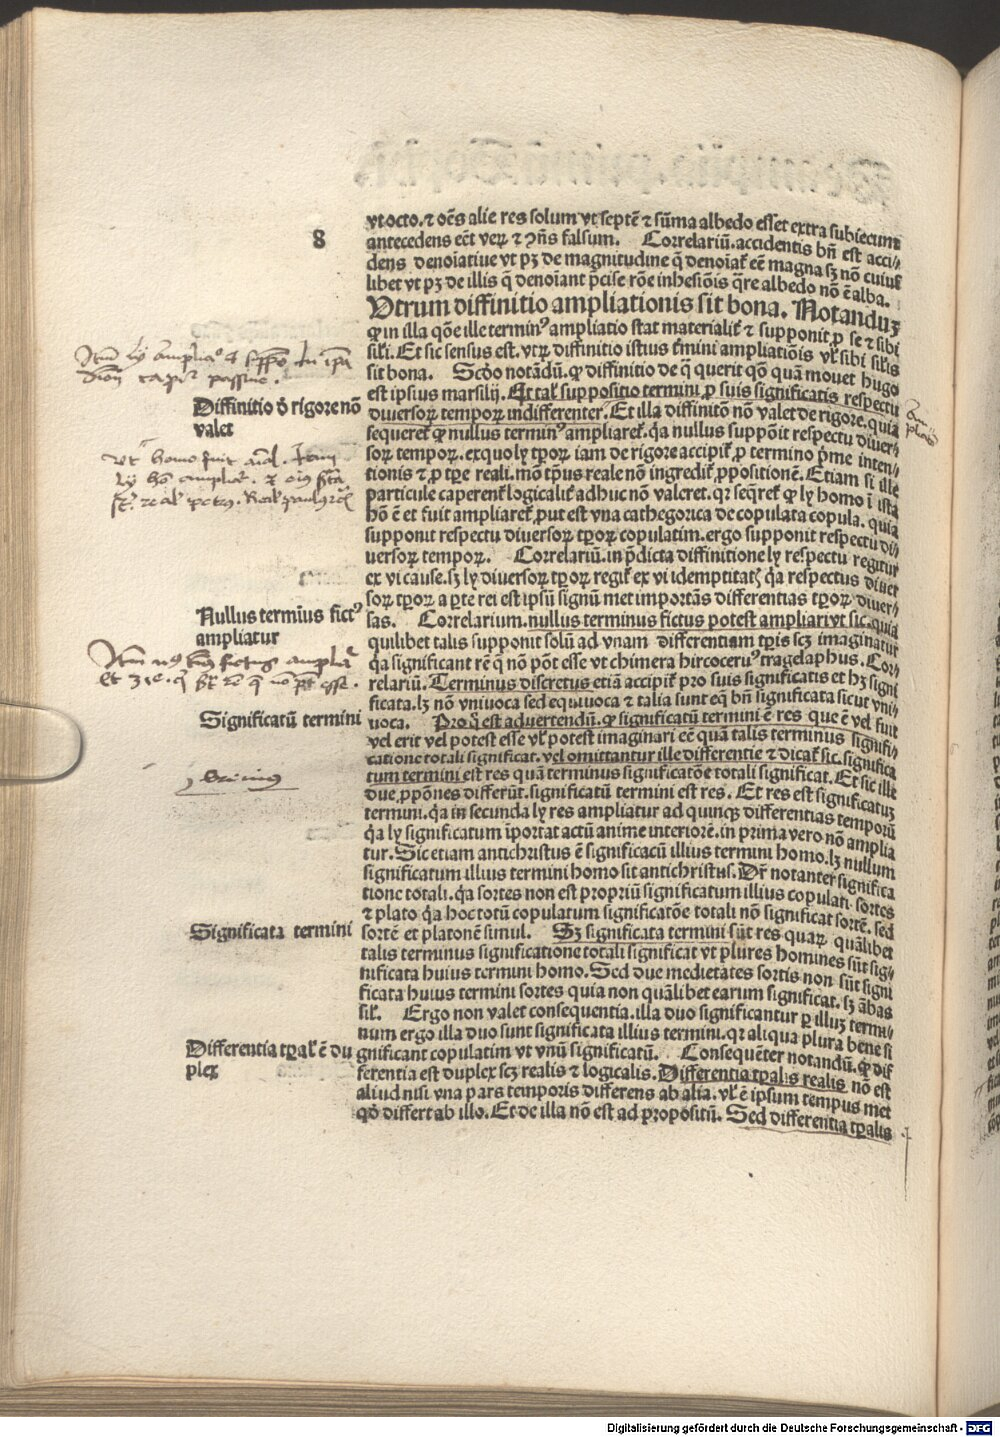 8
vt octo. ⁊ oēs alie res solum vt septē ⁊ sūma albedo esset extra subiecum
antecedens eēt veꝝ ⁊ ꝯn̄s falsum. Correlariū. accidentis bn̄ est acci⸗
dens denoīatiue vt pꝫ de magnitudine q̄ denoīat᷑ eē magna sꝫ nō cuius
libet vt pꝫ de illis q̄ denoīant p̄cise rōe inhesiōis q̄re albedo nō ē alba.
Vtrum diffinitio ampliationis sit bona. Notanduꝫ
ꝙ in illa qōe ille terminꝰ ampliatio stat materialit᷑ ⁊ supponit ꝓ se ⁊ sibi
sit bona. Scdo notādū. ꝙ diffinitio de q̄ querit qō quā mouet hugo
est ipsius marsilij. Est tal᷑ suppositio termini ꝓ suis significatis respectu
diuersoꝝ tempoꝝ indifferenter. Et illa diffinitō nō valet de rigore. quia
sequeret᷑ ꝙ nullus terminꝰ ampliaret᷑. q̄a nullus suppōit respectu diuer⸗
soꝝ tempoꝝ. ex quo ly tꝑoꝝ iam de rigore accipit᷑ ꝓ termino p̄me inten⸗
tionis ⁊ ꝓ tꝑe reali. mō tp̄us reale nō ingredit᷑ ꝓpositionē. Etiam si ille
particule caperent᷑ logicalit᷑ adhuc nō valeret. qꝛ seq̄ret᷑ ꝙ ly homo ī ista
hō ē et fuit ampliaret᷑ ꝓut est vna cathegorica de copulata copula. quia
supponit respectu diuersoꝝ tꝑoꝝ copulatim. ergo supponit respectu di⸗
uersoꝝ tempoꝝ. Correlariū. in p̄dicta diffinitione ly respectu regitur
ex vi cause. sꝫ ly diuersoꝝ tꝑoꝝ regit᷑ ex vi idemptitatꝭ q̄a respectus diuer
soꝝ tꝑoꝝ a ꝑte rei est ipsū signū met importās differentias tꝑoꝝ diuer⸗
sas. Correlarium. nullus terminus fictus potest ampliari vt sic. quia
quilibet talis supponit solū ad vnam differentiam tꝑis scꝫ imaginatur
q̄a significant rē q̄ nō pōt esse vt chimera hircoceruꝰ tragelaphus. Cor⸗
relariū. Terminus discretus etiā accipit᷑ pro suis significatis et hꝫ signi
ficata. lꝫ nō vniuoca sed equiuoca ⁊ talia sunt eq̄ bn̄ significata sicut vni⸗
uoca. Pro q̄ est aduertendū. ꝙ significatū termini ē res que ē vel fuit
vel erit vel potest esse vl᷑ potest imaginari eē quā talis terminus signifi⸗
catione totali significat. vel omittantur ille differentie ⁊ dicat᷑ sic. significa
tum termini est res quā terminus significatōe totali significat. Et sic ille
due ꝓpōnes differūt. significatū termini est res. Et res est significatuꝫ
termini. q̄a in secunda ly res ampliatur ad quinqꝫ differentias temporū
q̄a ly significatum īportat actū anime interiorē. in prima vero nō amplia
tur. Sic etiam antichristus ē significacū illius termini homo. lꝫ nullum
significatum illius termini homo sit antichristus. Dr̄ notanter significa
tione totali. q̄a sortes non est propriū significatum illius copulati. sortes
⁊ plato q̄a hoc totū copulatum significatōe totali nō significat sortē. sed
sortē et platonē simul. Sꝫ significata termini sūt res quaꝝ quālibet
talis terminus significatione totali significat vt plures homines sūt sig⸗
nificata huius termini homo. Sed due medietates sortis non sūt signi
ficata huius termini sortes quia non quālibet earum significat. sꝫ ābas
sil᷑. Ergo non valet consequentia. illa duo significantur ꝑ illuꝫ termi⸗
num ergo illa duo sunt significata illius termini. qꝛ aliqua plura bene si
gnificant copulatim vt vnū significatū. Consequēter notandū. ꝙ dif
ferentia est duplex scꝫ realis ⁊ logicalis. Differentia tꝑalis realis nō est
aliud nisi vna pars temporis differens ab alia. vl᷑ ē ipsum tempus met
qō differt ab illo. Et de illa nō est ad propositū. Sed differentia tꝑalis
Diffinitio d̄ rigore nō
valet
Nullus termīus fictꝰ
ampliatur
Significatū termini
Significata termini
Differentia tꝑal᷑ ē du
plex
Digitalisierung gefördert durch die Deutsche Forschungsgemeinschaft - DFG